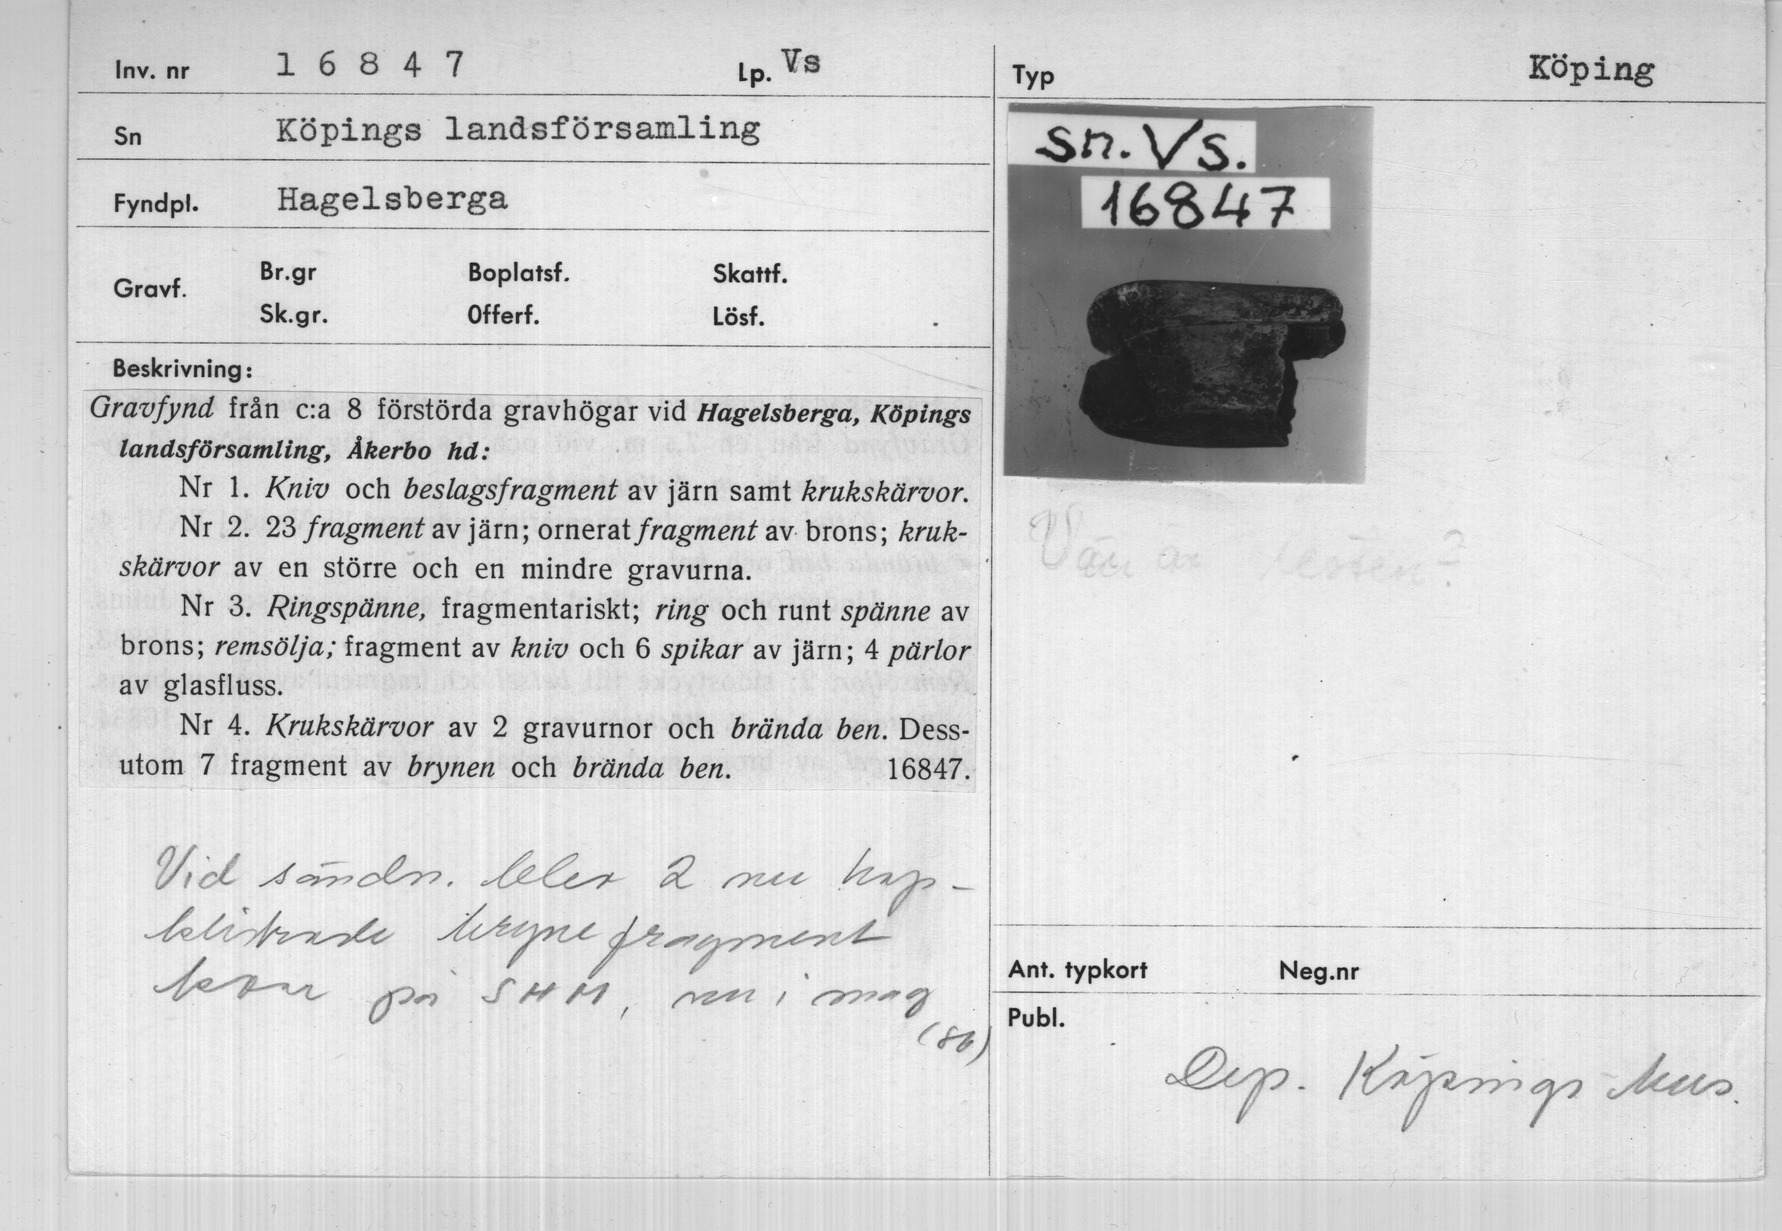 Inv. nr 16847 Lp. Vs
Sn Köpings landsförsamling
Fyndpl. Hagelsberga
Gravf. Br.gr Boplatsf. Skattf.
Sk.gr. Offerf. Lösf.
Beskrivning:
Gravfynd från c:a 8 förstörda gravhögar vid Hagelsberga, Köpings
landsförsamling, Åkerbo hd:
Nr 1. Kniv och beslagsfragment av järn samt krukskärvor.
Nr 2. 23 fragment av järn; ornerat fragment av brons; kruk-
skärvor av en större och en mindre gravurna.
Nr 3. Ringspänne, fragmentariskt; ring och runt spänne av
brons; remsölja; fragment av kniv och 6 spikar av järn; 4 pärlor
av glasfluss.
Nr 4. Krukskärvor av 2 gravurnor och brända ben. Dess-
utom 7 fragment av brynen och brända ben. 16847.
Vid sändn. blev 2 nu hop-
klistrade brynefragment
kvar på SHM, nu i mag
(86)
Typ Köping
sn. Vs.
16847
Var är resten?
Ant. typkort Neg.nr
Publ.
Dep. Köpings Mus.